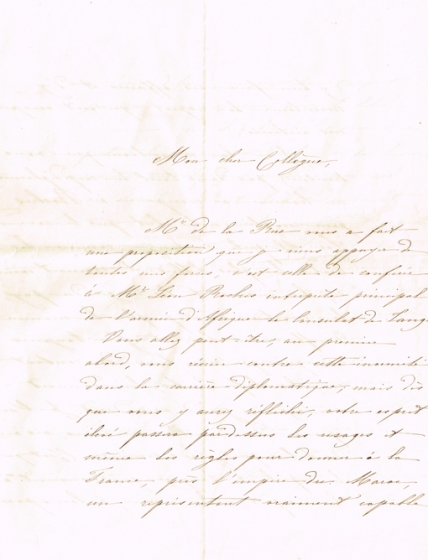 Mon cher Collègue,
Mr de la Rue vous a fait
une proposition que je viens appuyer de
toutes mes forces, c'est celle de confier
à Mr Léon Roches interprète principal
de l'armée d'Afrique le consulat de Tang
Vous allez peut-être, au premier
abord, vous récrier contre cette
dans la carrière diplomatique, mais dès
que vous y aurez réfléchi, votre esprit
élevé passera pardessus les usages et
même les règles pour donner à la
France, près l'empire du Maroc,
un représentant vraiment capable